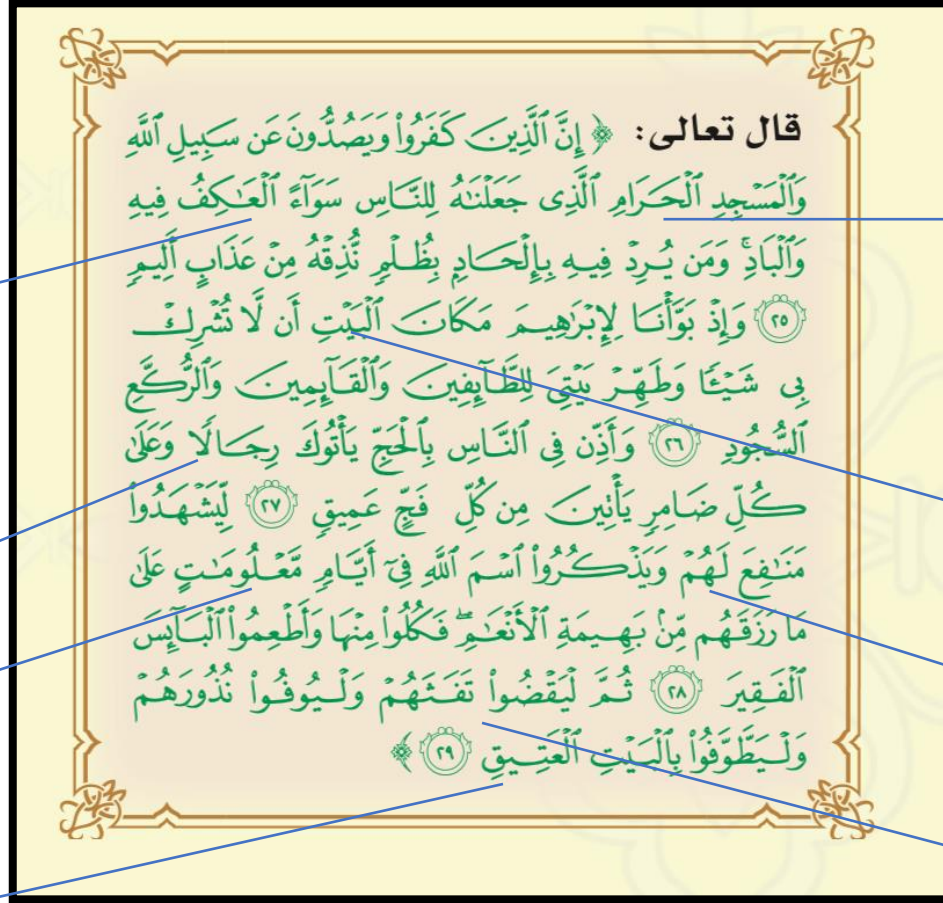 قال تعالى: ﴿ إِنَّ ٱلَّذِينَ كَفَرُوا۟ وَيَصُدُّونَ عَن سَبِيلِ ٱللَّهِ
وَٱلْمَسْجِدِ ٱلْحَرَامِ ٱلَّذِى جَعَلْنَٰهُ لِلنَّاسِ سَوَآءً ٱلْعَٰكِفُ فِيهِ
وَٱلْبَادِۚ وَمَن يُرِدْ فِيهِ بِإِلْحَادٍۭ بِظُلْمٍ نُّذِقْهُ مِنْ عَذَابٍ أَلِيمٍ
٢٥ وَإِذْ بَوَّأْنَا لِإِبْرَٰهِيمَ مَكَانَ ٱلْبَيْتِ أَن لَّا تُشْرِكْ
بِى شَيْـًٔا وَطَهِّرْ بَيْتِىَ لِلطَّآئِفِينَ وَٱلْقَآئِمِينَ وَٱلرُّكَّعِ
ٱلسُّجُودِ ٢٦ وَأَذِّن فِى ٱلنَّاسِ بِٱلْحَجِّ يَأْتُوكَ رِجَالًا وَعَلَىٰ
كُلِّ ضَامِرٍ يَأْتِينَ مِن كُلِّ فَجٍّ عَمِيقٍ ٢٧ لِّيَشْهَدُوا۟
مَنَٰفِعَ لَهُمْ وَيَذْكُرُوا۟ ٱسْمَ ٱللَّهِ فِىٓ أَيَّامٍ مَّعْلُومَٰتٍ عَلَىٰ
مَا رَزَقَهُم مِّنۢ بَهِيمَةِ ٱلْأَنْعَٰمِۖ فَكُلُوا۟ مِنْهَا وَأَطْعِمُوا۟ ٱلْبَآئِسَ
ٱلْفَقِيرَ ٢٨ ثُمَّ لْيَقْضُوا۟ تَفَثَهُمْ وَلْيُوفُوا۟ نُذُورَهُمْ
وَلْيَطَّوَّفُوا۟ بِٱلْبَيْتِ ٱلْعَتِيقِ ٢٩ ﴾